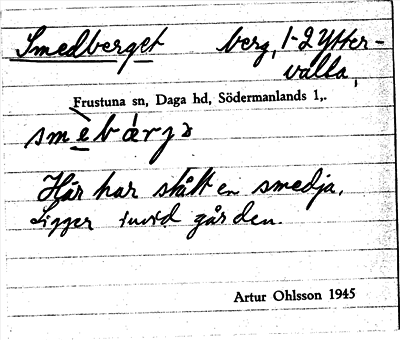 Smedberget berg, 1-2 Ytter-
valla,
Frustuna sn, Daga hd, Södermanlands l,.
smèbárjə
Här har stått en smedja.
Ligger invid gården.
Artur Ohlsson 1945